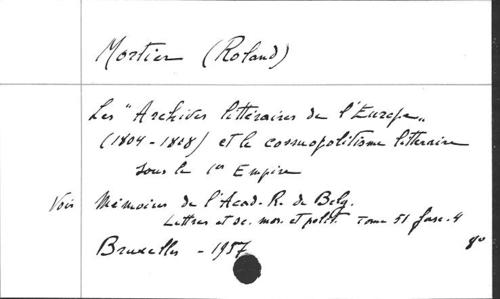 Mortier (Roland)
Les "Archives littéraires de l'Europe"
(1804-1808) et le cosmopolitisme littéraire
sous le 1er Empire
Voir Mémoires de l'Acad. R. de Belg.
Lettres et sc. mor. et polit. Tome 51 fasc. 4
Bruxelles - 1957 8°